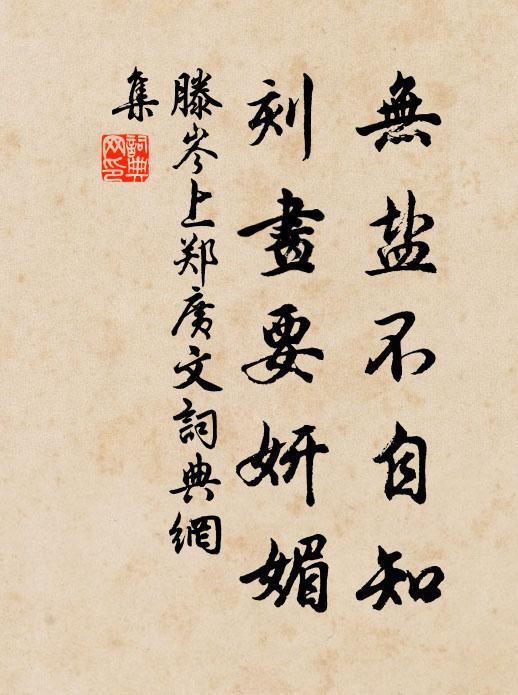 無盐不自知
刻畫要妍媚
滕岑上郑廣文詞典網
集
詞典
网印